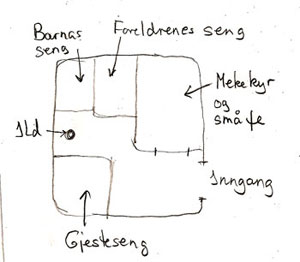 Barnas
seng
Foreldrenes seng
Mekekyr
og
småfe
Ild
Inngang
Gjesteseng